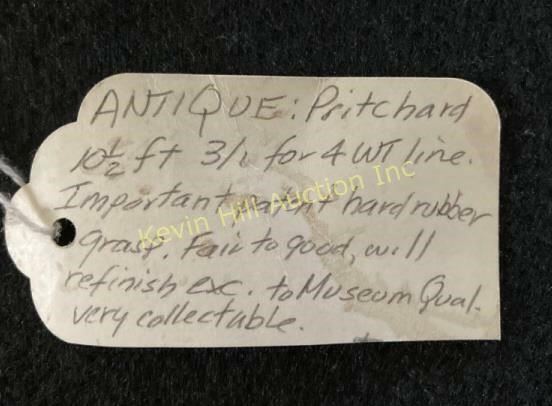 ANTIQUE: Pritchard
10 1/2 ft 3/1 for 4 WT line.
Important, patent hard rubber
grasp. Fair to good, will
refinish exc. to Museum Qual.
very collectable.
Kevin Hill Auction Inc